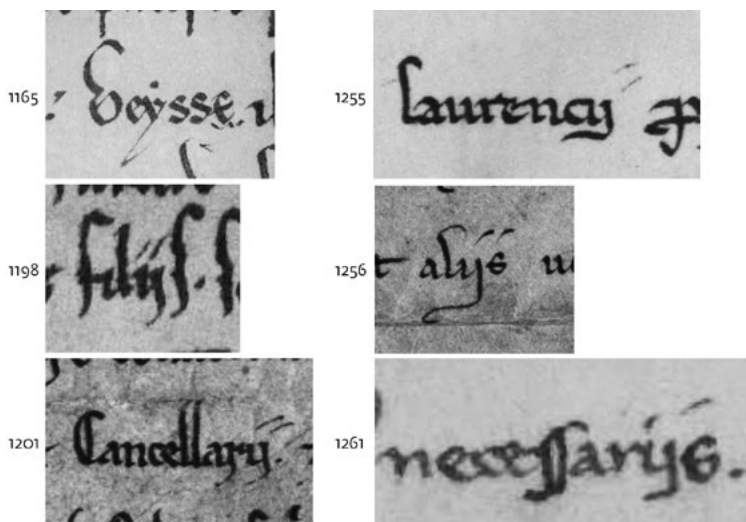 1165 deÿsse.
1198 filijs.
1201 Cancellarij.
1255 laurencij
1256 alijs
1261 necessarijs.